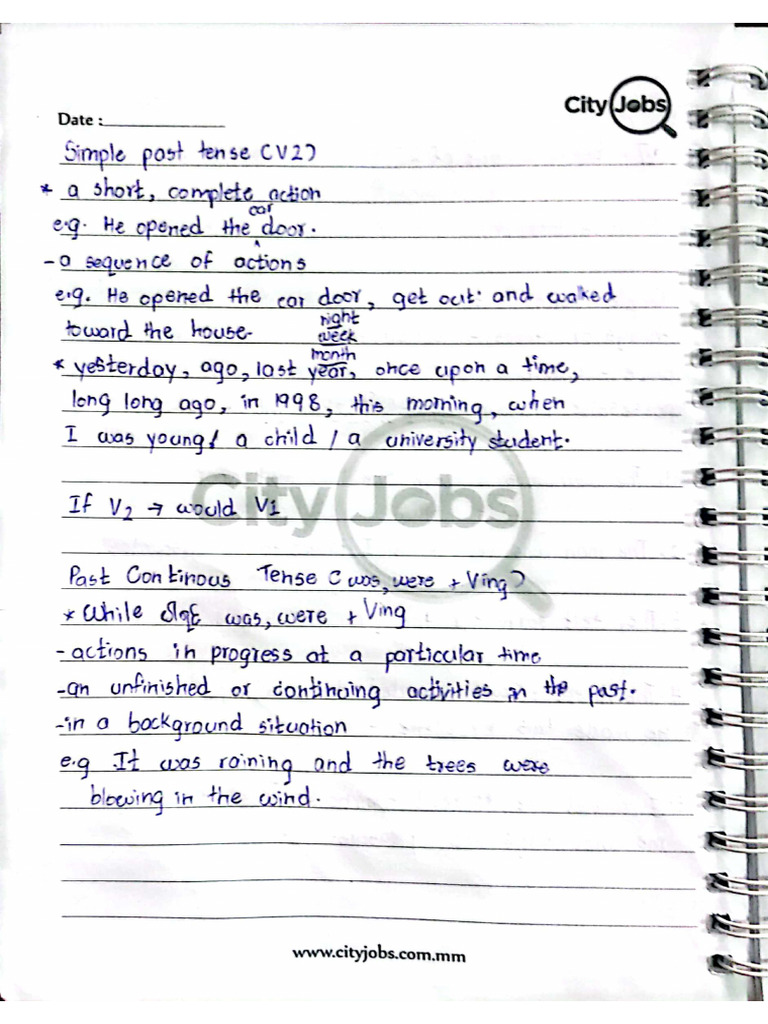 City Jobs
Date :
Simple past tense (V2)
* a short, complete action
car
e.g. He opened the door.
- a sequence of actions
e.g. He opened the car door, get out. and walked
toward the house.
right
week
month
* yesterday, ago, last year, once upon a time,
long long ago, in 1998, this morning, when
I was young / a child / a university student.
City Jobs
If V2 → would V1
Past Continous Tense (was, were + Ving)
* While was, were + Ving
- actions in progress at a particular time
- an unfinished or continuing activities in the past.
- in a background situation
e.g It was raining and the trees were
blowing in the wind.
www.cityjobs.com.mm